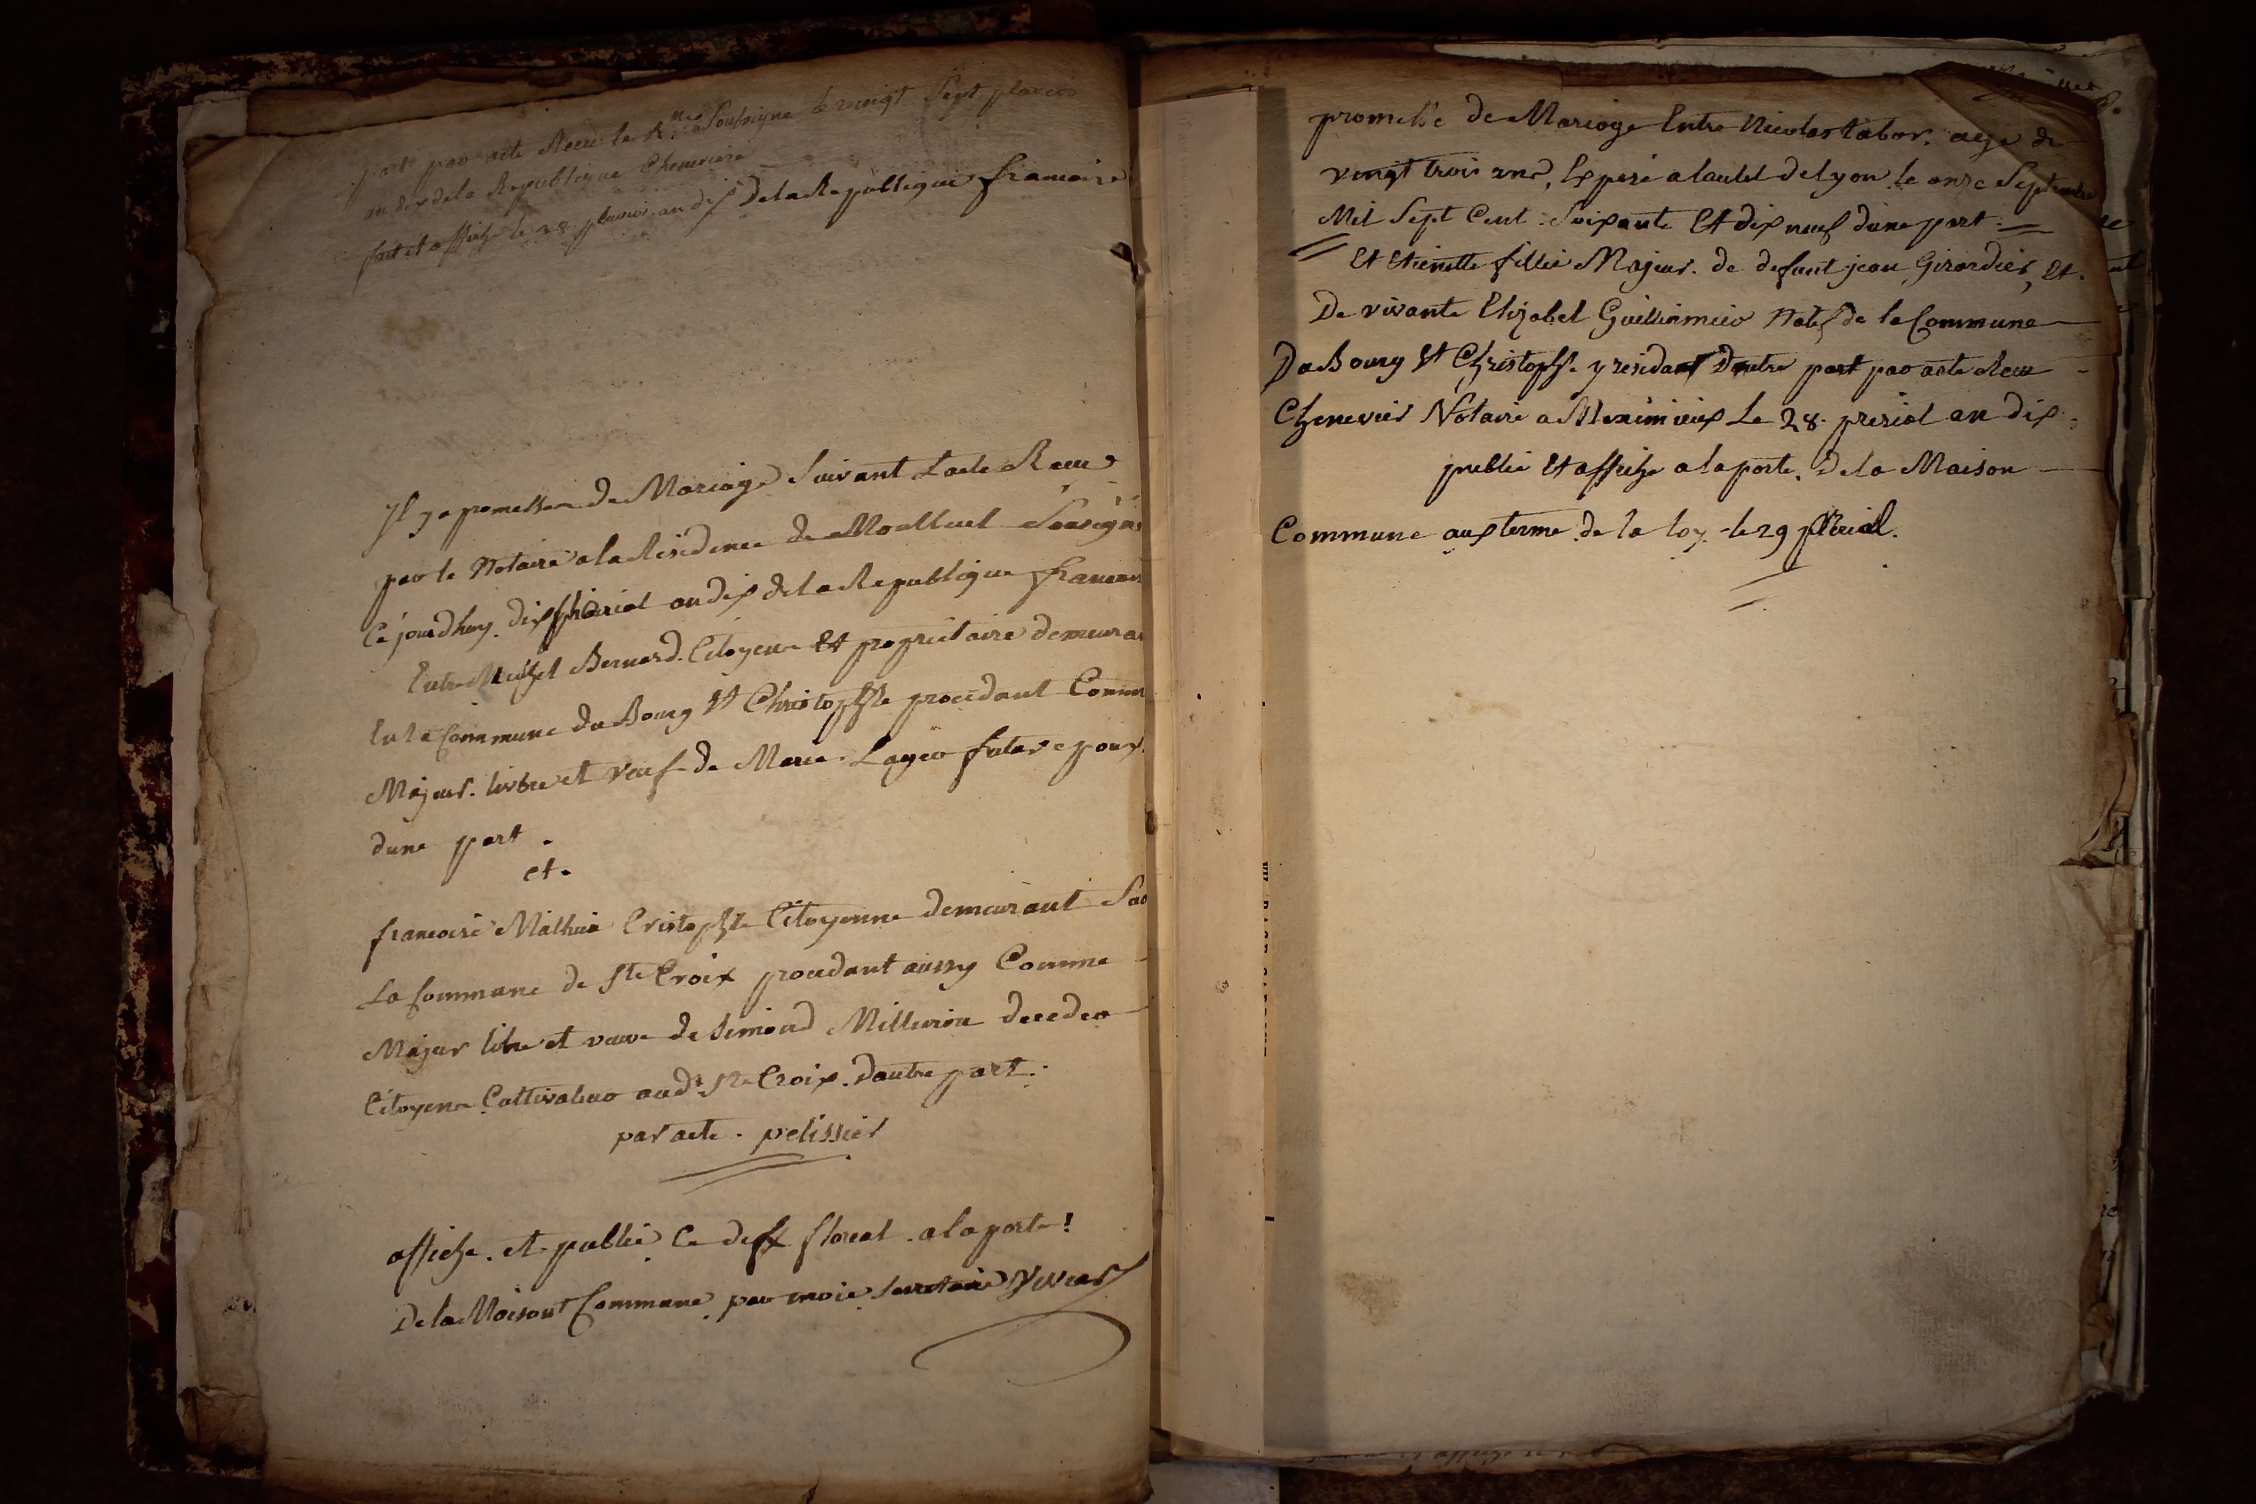 part par acte Recu le Nre Soussigne le vingt Sept pluvios
an dix de la Republique Chenevier
fait et affiche le 28 pluvios an dix De la Republique francoise
Il y a promesse de Mariage Suivant Lacte Recu
par le Notaire a la Residence de Montluel Sousigne
Ce jourdhuy dix floreal an dix de la Republique francois
Entre Michel Bernard Citoyen Et proprietaire demeuran
En la Commune du Bourg St Christophle procedant Comme
Majeur libre et veuf de Marie Layeo futur epoux
dune part
et
francoise Mathieu Cristophle Citoyenne demeurant Sur
La Commune de Ste Croix procedant aussy Comme
Majeur libre et veuve de Simond Millieron decedeo
Citoyen Cultivateur aud. Ste Croix. Dautre part.
par acte. pelissier
affiche. et publie Ce dix floreal. a la porte
De la Maison Commune par moie Secretaire
promesse de Mariage Entre Nicolas tabor. age de
vingt trois ans, Expose a lautel de Lyon le onze Septembre
Mil Sept Cent Soixante Et dix neuf dune part
Et Etienette fillie Majeur. de defunt jean Girardier, Et.
De vivante Elizabet Guilliermiere Natif de la Commune
Du Bourg St Christophle y residant Dautre part par acte Recu
Chenevier Notaire a Meximieux Le 28 prerial an dix
publie Et affiche a la porte De la Maison
Commune aux terme de la loy le 29 prerial.